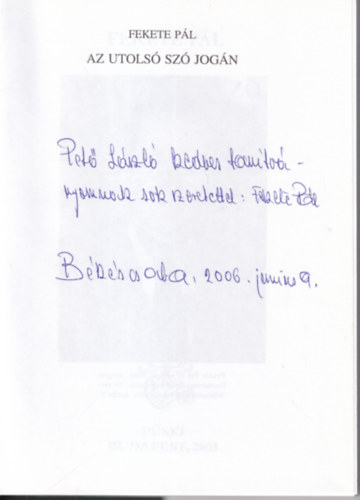 FEKETE PÁL
AZ UTOLSÓ SZÓ JOGÁN
Pető László kedves tanítvá-
nyomnak sok szeretettel: Fekete Pál
Békéscsaba, 2006. június 9.